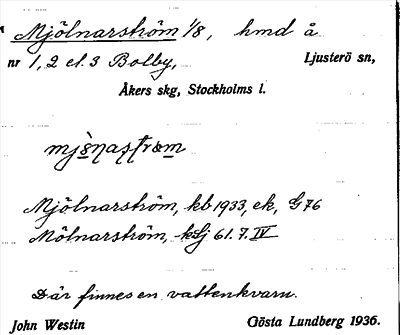 Mjölnarström 1/8, hmd å
nr 1, 2 el. 3 Bolby, Ljusterö sn,
Åkers skg, Stockholms l.
Mjölnarström, kb 1933, ek, G 76
Mölnarström, 61. 7. IV
Där finnes en vattenkvarn.
John Westin Gösta Lundberg 1936.